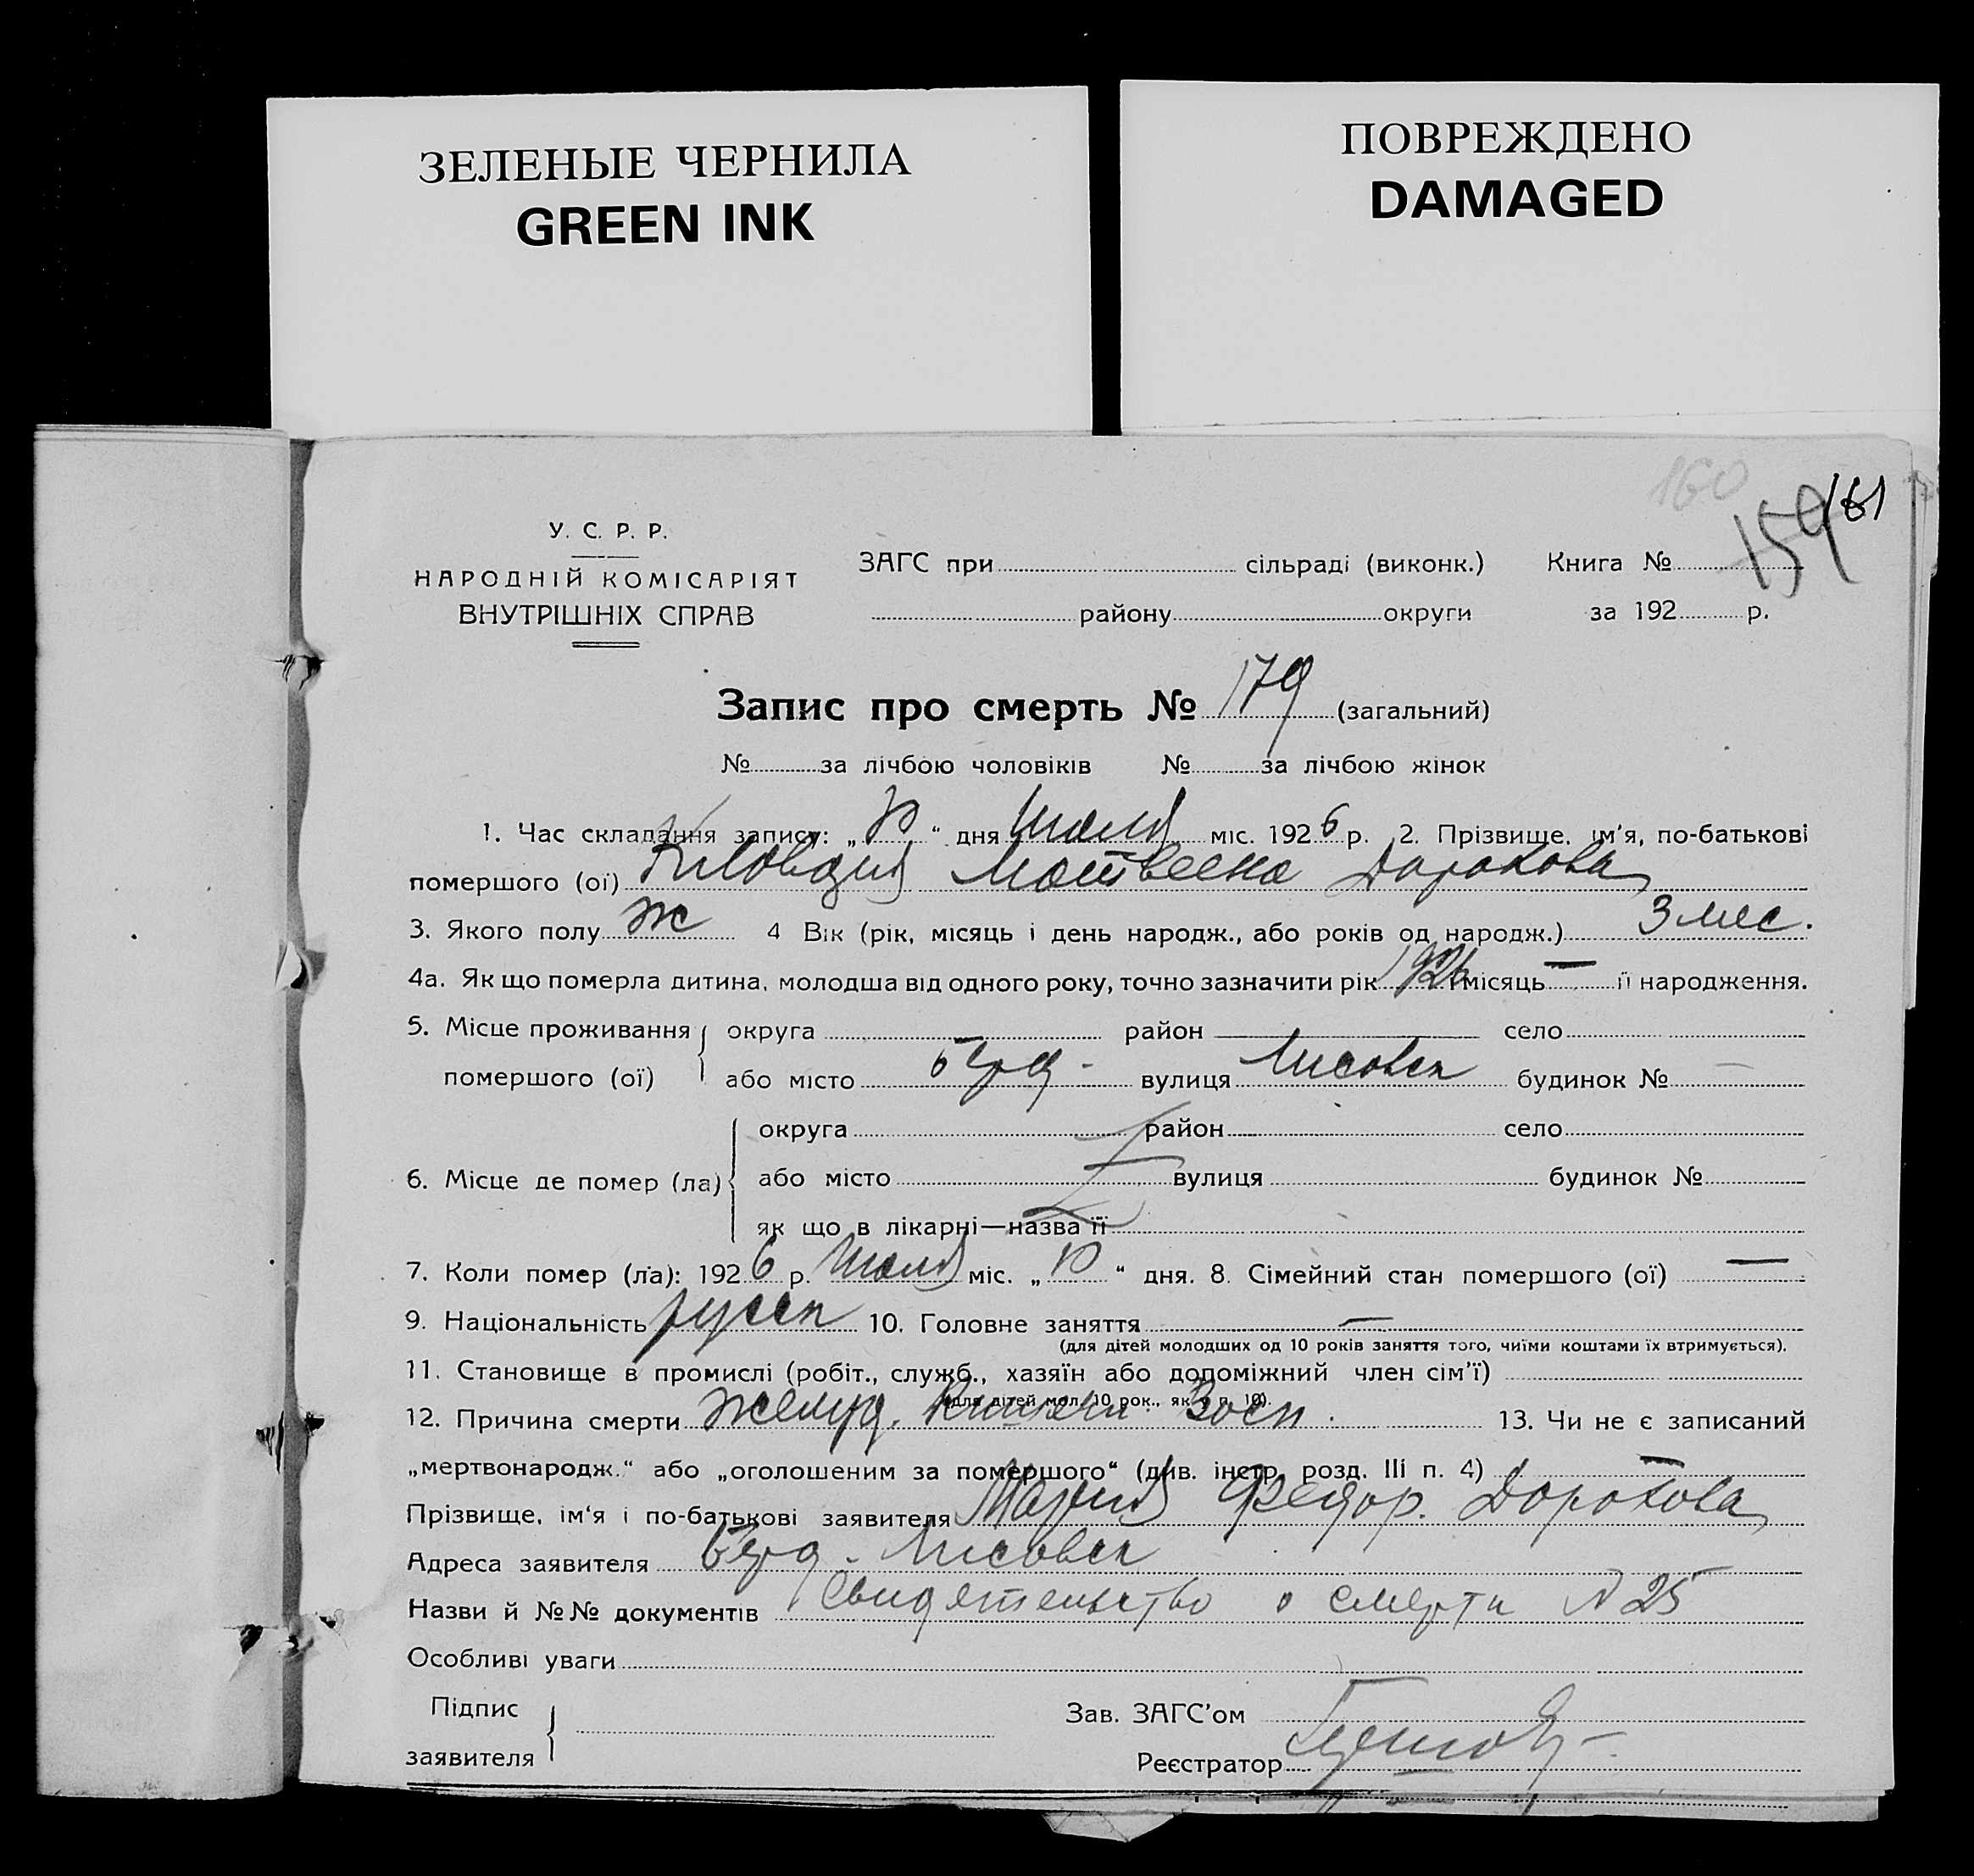 ЗЕЛЕНЫЕ ЧЕРНИЛА
GREEN INK
ПОВРЕЖДЕНО
DAMAGED
160
159 161
У. С. Р. Р.
НАРОДНІЙ КОМІСАРІЯТ
ВНУТРІШНІХ СПРАВ
ЗАГС при сільраді (виконк.) Книга №
району округи за 192 р.
Запис про смерть № 179 (загальний)
№ за лічбою чоловіків № за лічбою жінок
1. Час складання запису: „ “ дня Июля міс. 1926 р. 2. Прізвище, ім'я, по-батькові
помершого (ої) Клавдия Матвеевна Дорохова
3. Якого полу ж 4 Вік (рік, місяць і день народж., або років од народж.) 3 мес.
4а. Як що померла дитина, молодша від одного року, точно зазначити рік 1926 місяць — її народження.
5. Місце проживання округа район село
помершого (ої) або місто Берд- вулиця Лисовск будинок № —
округа район село
6. Місце де помер (ла) або місто вулиця будинок №
як що в лікарні—назва її
7. Коли помер (ла): 1926 р. Июля міс. „10“ дня. 8. Сімейний стан помершого (ої) —
9. Національність русск 10. Головне заняття —
(для дітей молодших од 10 років заняття того, чиїми коштами їх втримується).
11. Становище в промислі (робіт., служб., хазяїн або допоміжний член сім'ї)
(для дітей мол. 10 рок., як в п. 10).
12. Причина смерти Желуд. 13. Чи не є записаний
„мертвонародж.“ або „оголошеним за помершого“ (див. інстр. розд. III п. 4) —
Прізвище, ім'я і по-батькові заявителя Мария Федор. Дорохова
Адреса заявителя Берд- Лисовск
Назви й №№ документів Свидетельство о смерти N 25
Особливі уваги
Підпис
заявителя
Зав. ЗАГС'ом
Реєстратор